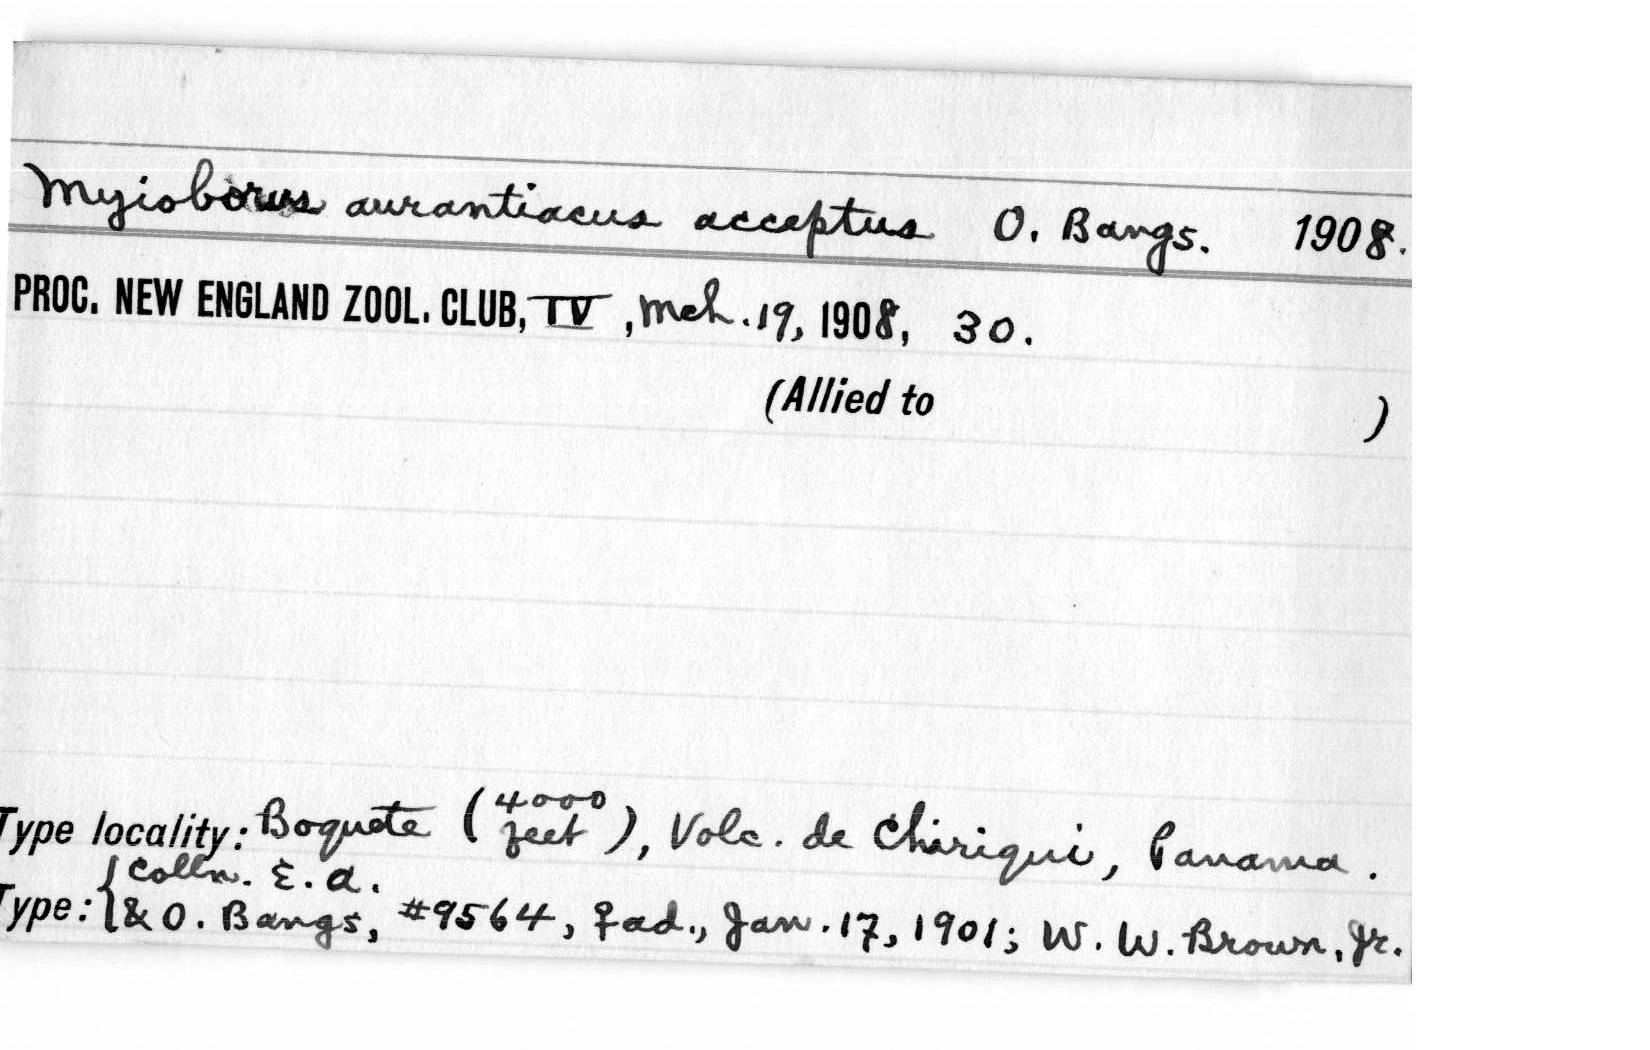 Myioborus aurantiacus acceptus O. Bangs. 1908.
PROC. NEW ENGLAND ZOOL. CLUB, IV, Mch. 19, 1908, 30.
(Allied to )
Type locality: Boquete (4000 feet), Volc. de Chiriqui, Panama.
Colln. E. A.
Type: & O. Bangs, #9564, ♀ ad., Jan. 17, 1901; W. W. Brown, Jr.